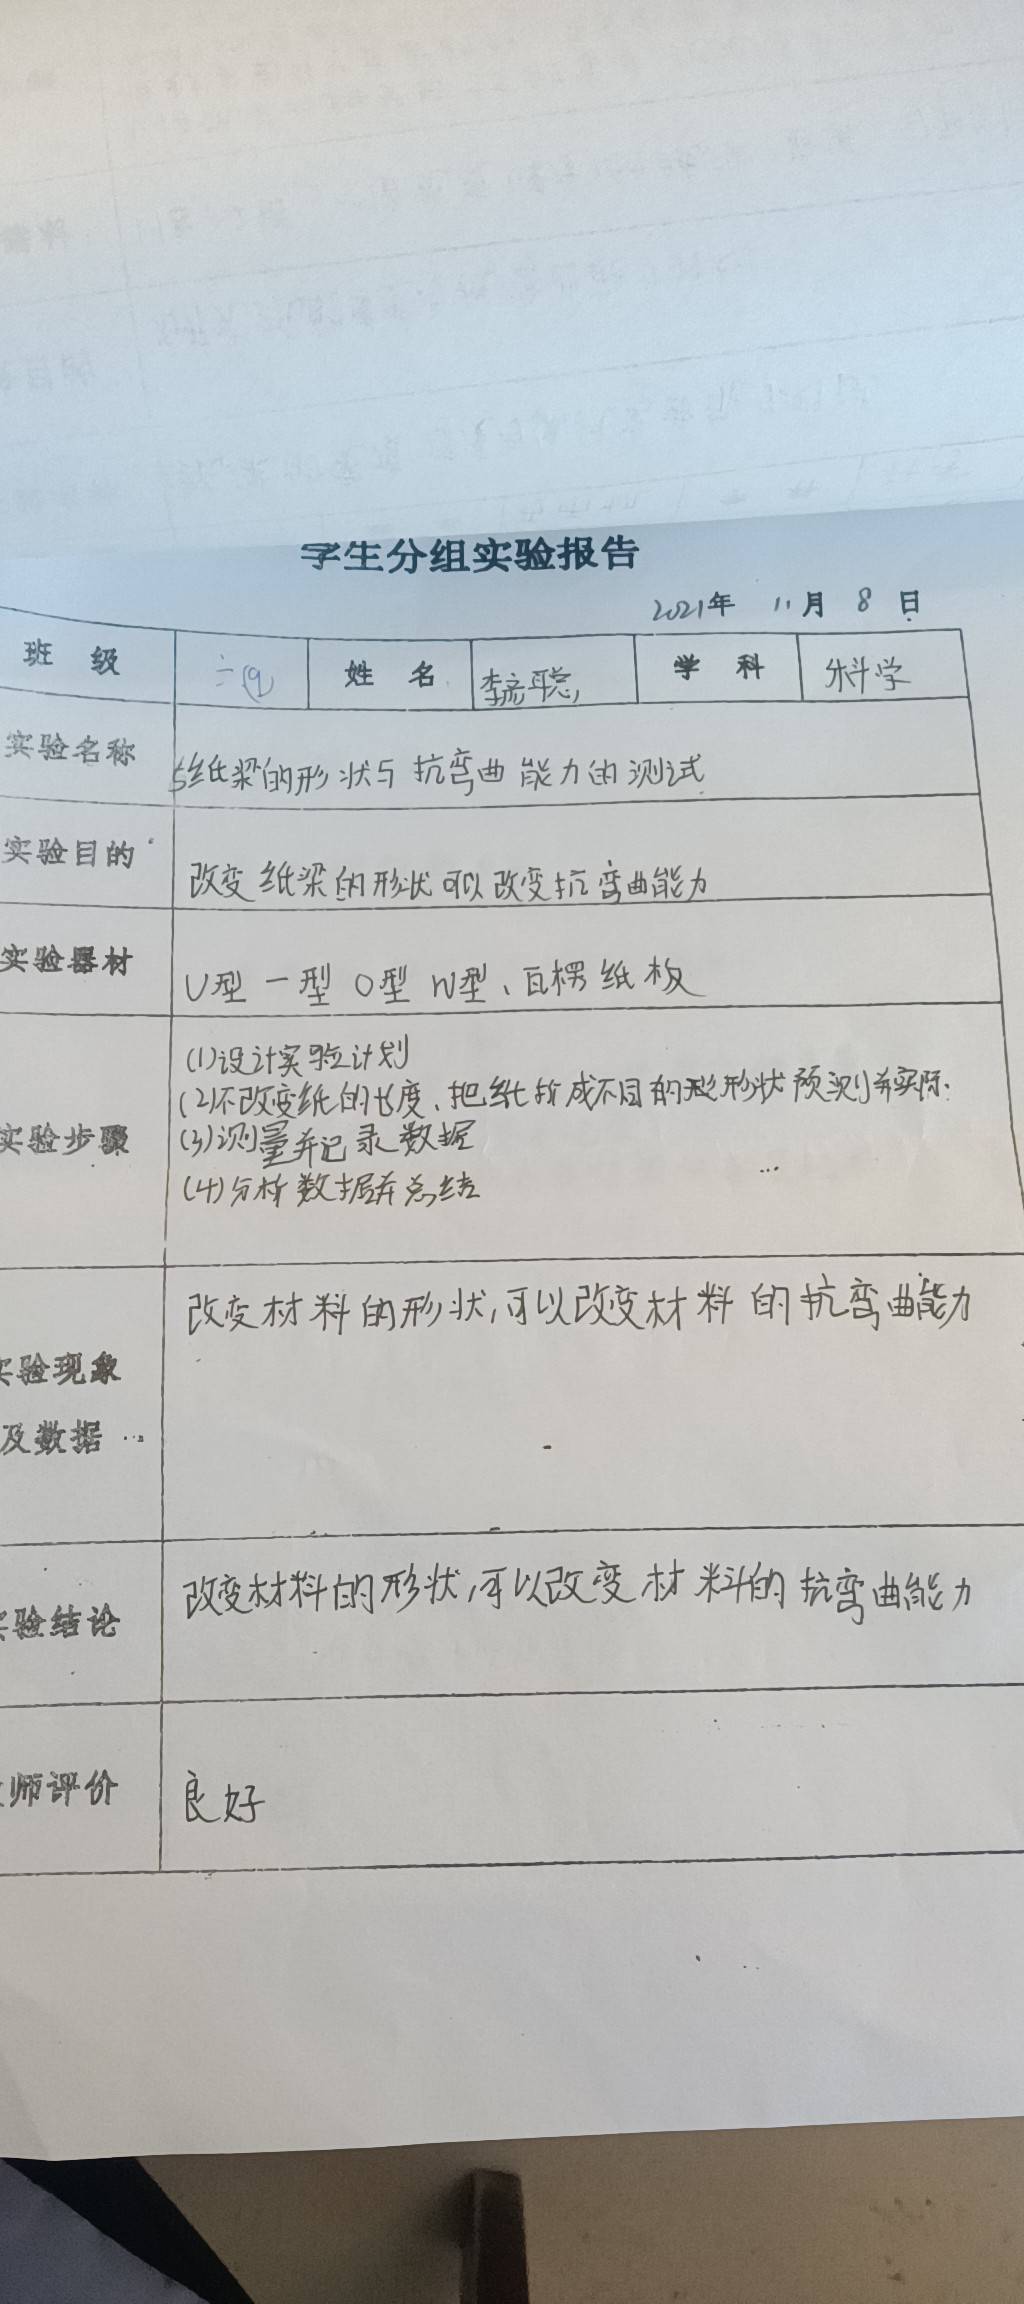 学生分组实验报告
2021年 11月 8日
班 级 姓 名 李彦聪 学 科 科学
实验名称 纸梁的形状与抗弯曲能力的测试
实验目的 改变纸梁的形状可以改变抗弯曲能力
实验器材 U型 一型 O型 W型、瓦楞纸板
(1)设计实验计划
(2)不改变纸的长度、把纸折成不同的形状预测并实际
实验步骤 (3)测量并记录数据
(4)分析数据并总结
改变材料的形状,可以改变材料的抗弯曲能力
实验现象
及数据
实验结论 改变材料的形状,可以改变材料的抗弯曲能力
师评价 良好